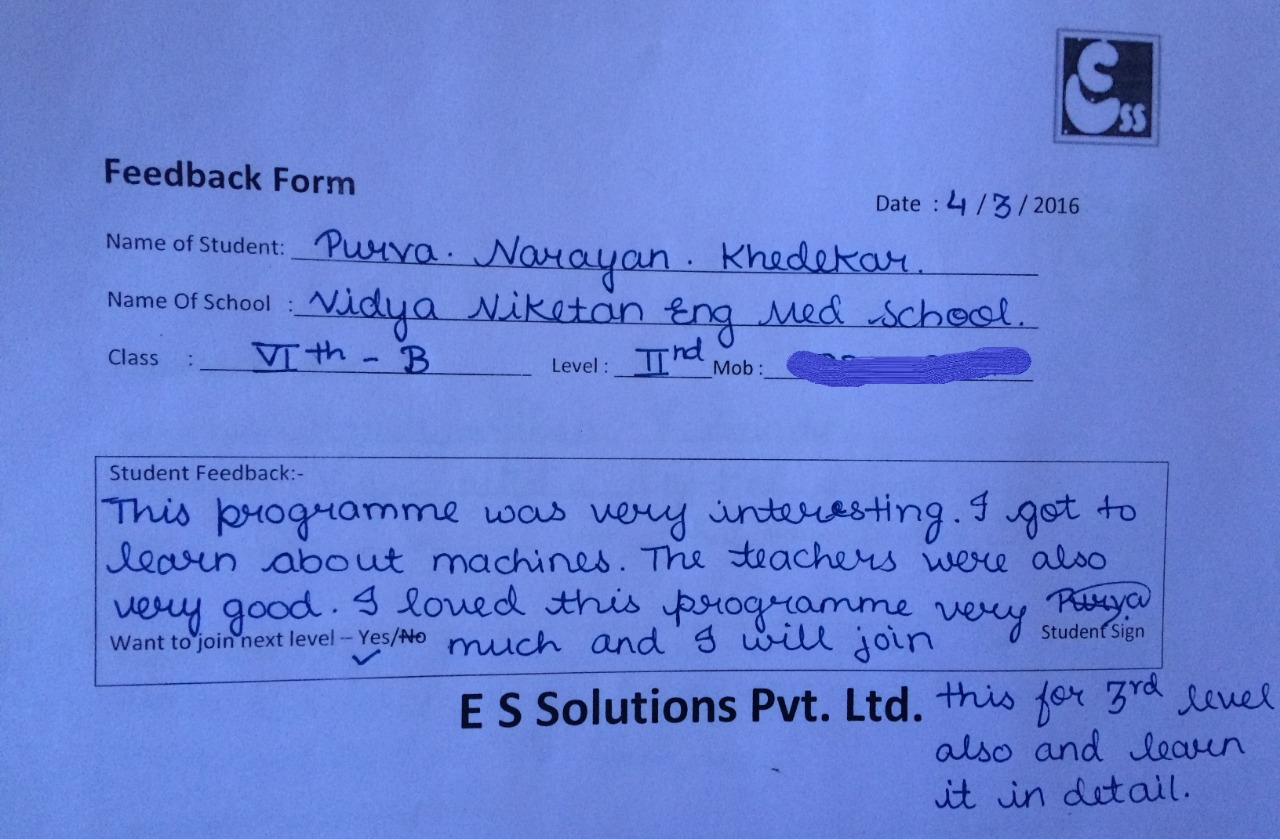 ESS
Feedback Form
Date : 4/3/2016
Name of Student: Purva. Narayan. Khedekar.
Name Of School : Vidya Niketan Eng Med school.
Class : VIth - B Level : IInd Mob :
Student Feedback:-
This programme was very interesting. I got to
learn about machines. The teachers were also
very good. I loved this programme very Purva
Want to join next level – Yes/No much and I will join Student Sign
E S Solutions Pvt. Ltd. this for 3rd level
also and learn
it in detail.